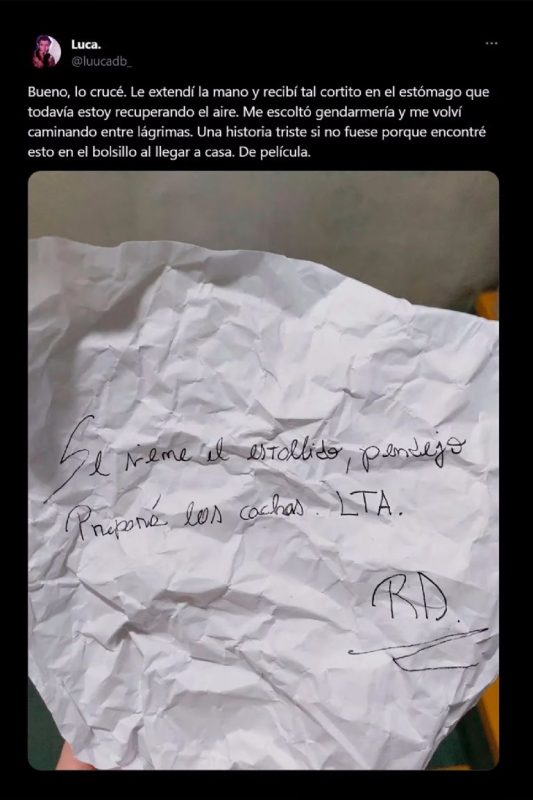 Luca.
@luucadb_
Bueno, lo crucé. Le extendí la mano y recibí tal cortito en el estómago que
todavía estoy recuperando el aire. Me escoltó gendarmería y me volví
caminando entre lágrimas. Una historia triste si no fuese porque encontré
esto en el bolsillo al llegar a casa. De película.
Se viene el estallido, pendejo
Prepará las cachas. LTA.
RD.